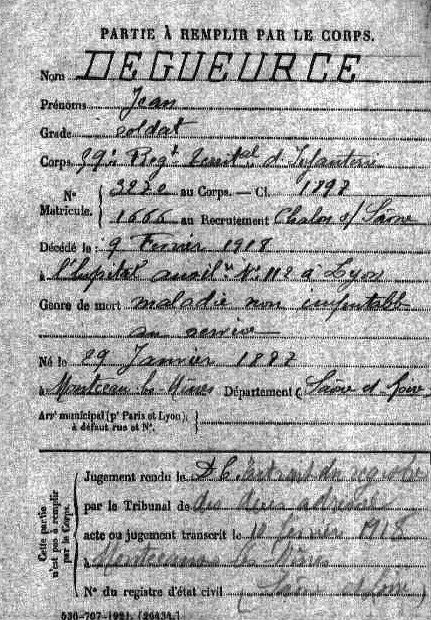 PARTIE À REMPLIR PAR LE CORPS.
Nom DEGUEURCE
Prénoms Jean
Grade soldat
Corps 59e Regt territal d'Infanterie
No Matricule. 3220 au Corps. — Cl. 1897
1666 au Recrutement Chalon s/ Saône
Décédé le 9 Février 1918
à l'hopital auxilre No 112 à Lyon
Genre de mort maladie non imputable
au service
Né le 29 Janvier 1877
à Montceau-les-Mines Département (Saône et Loire
Arrt municipal (pr Paris et Lyon),
à défaut rue et No.
Cette partie n'est pas à remplir par le Corps.
Jugement rendu le D.C. Extrait du registre
par le Tribunal de des
acte ou jugement transcrit le février 1918
à Montceau les Mines
No du registre d'état civil (Saône et Loire)
536-707-1921. [26434.]